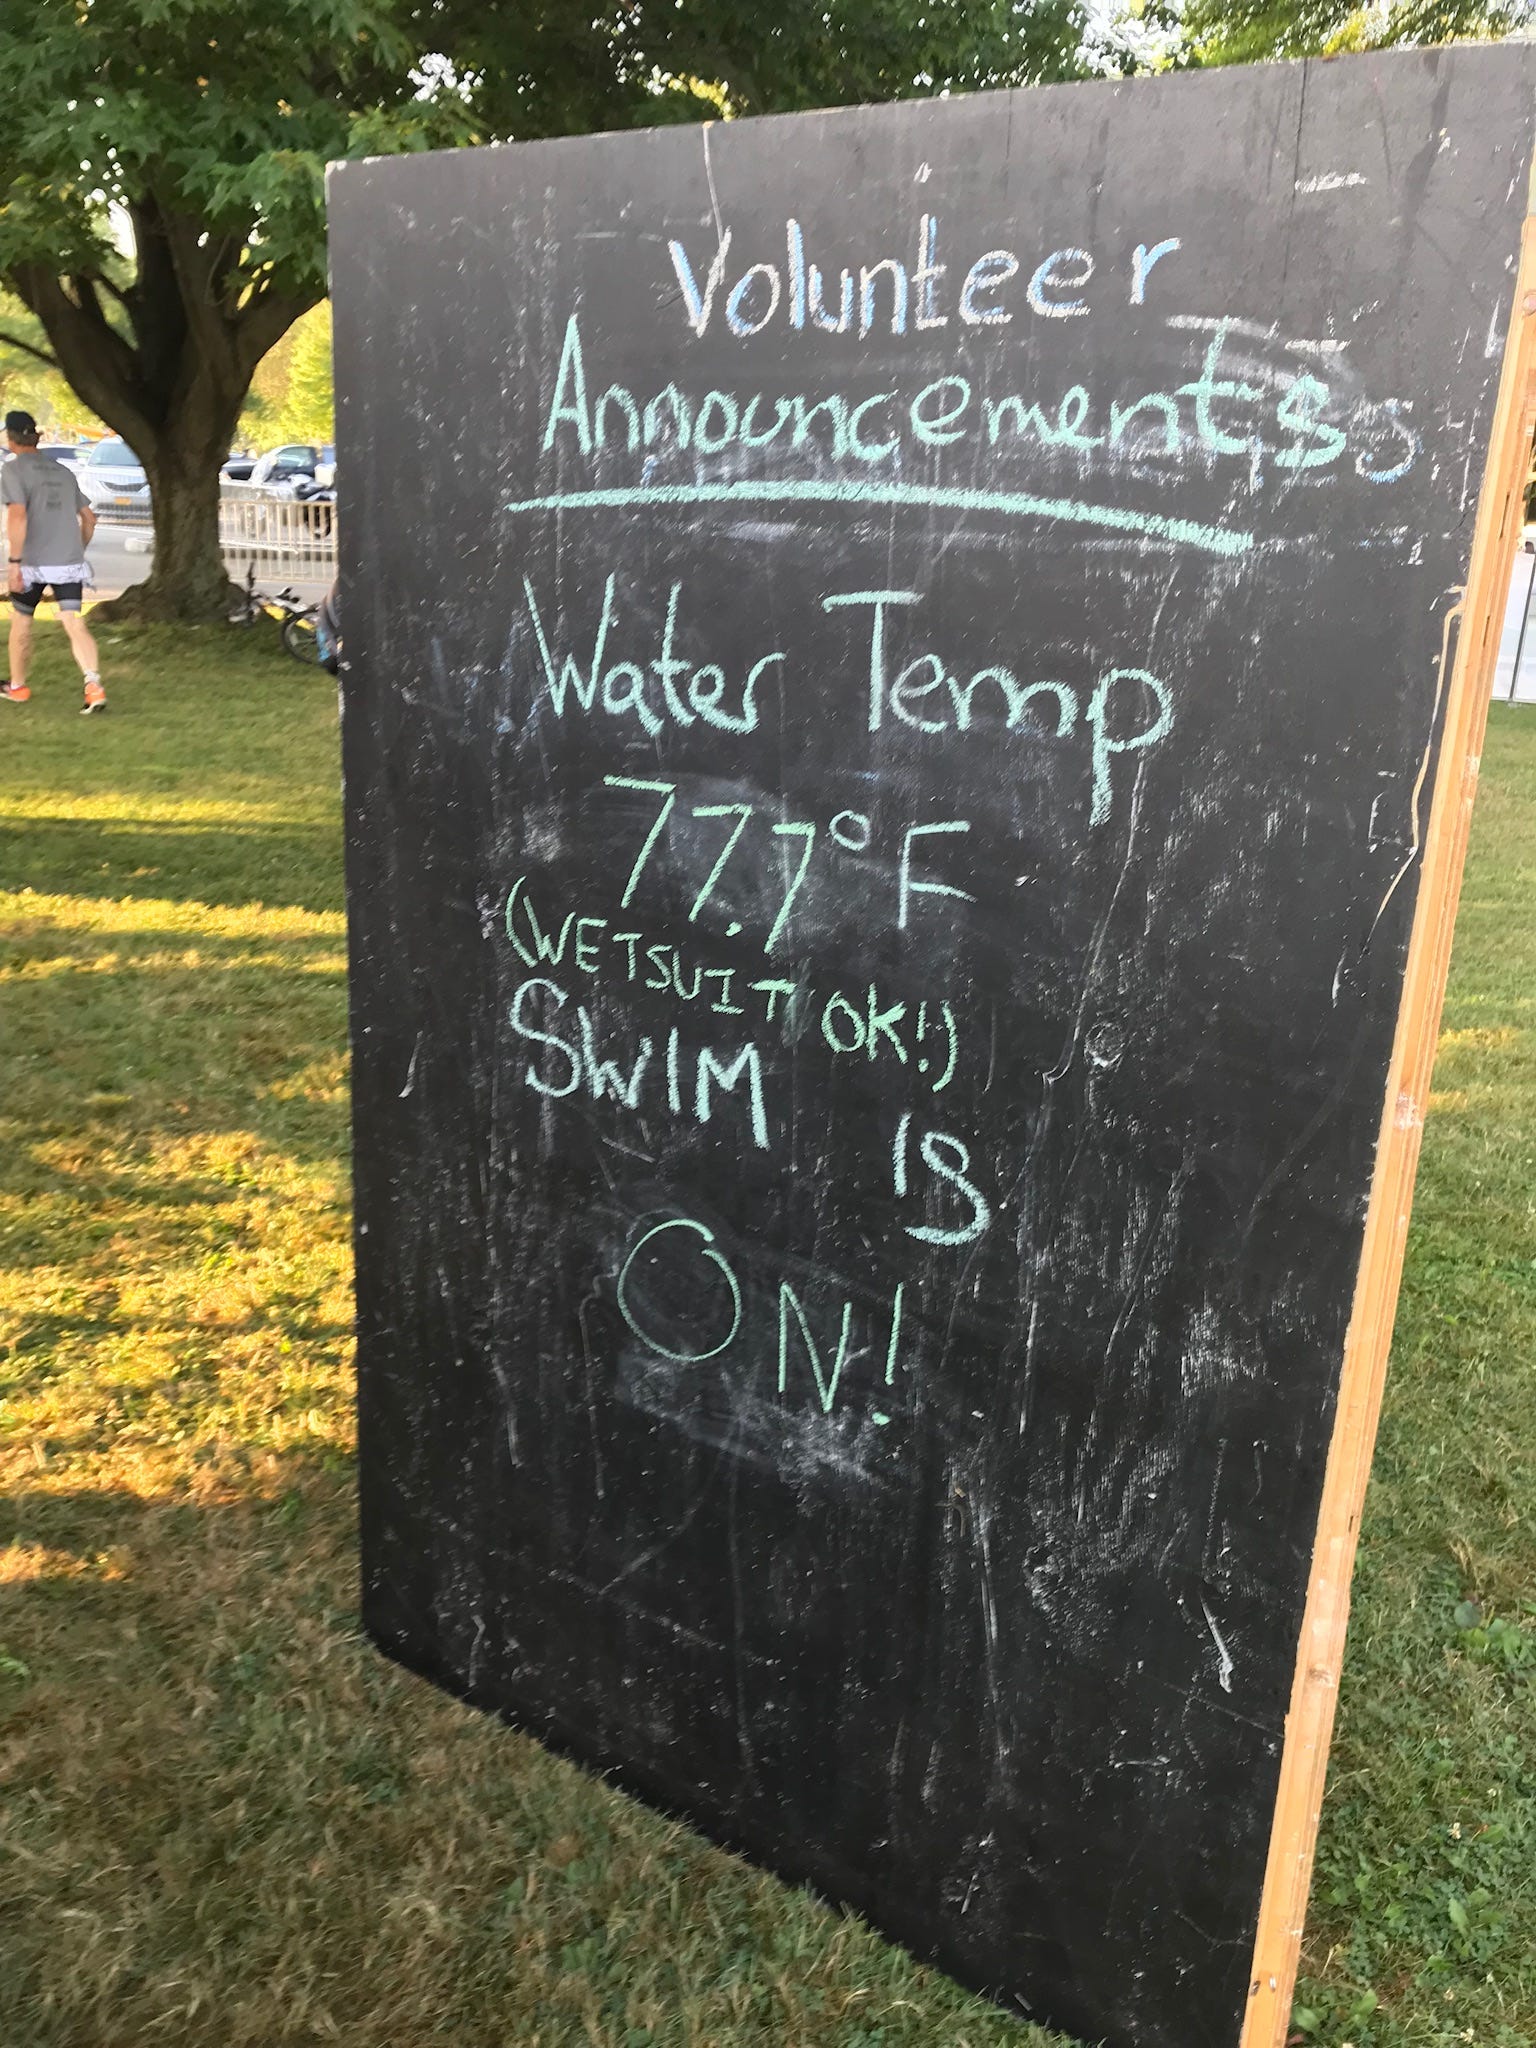 Volunteer
Announcements
Water Temp
77.7°F
(WETSUIT OK!)
SWIM IS
ON!